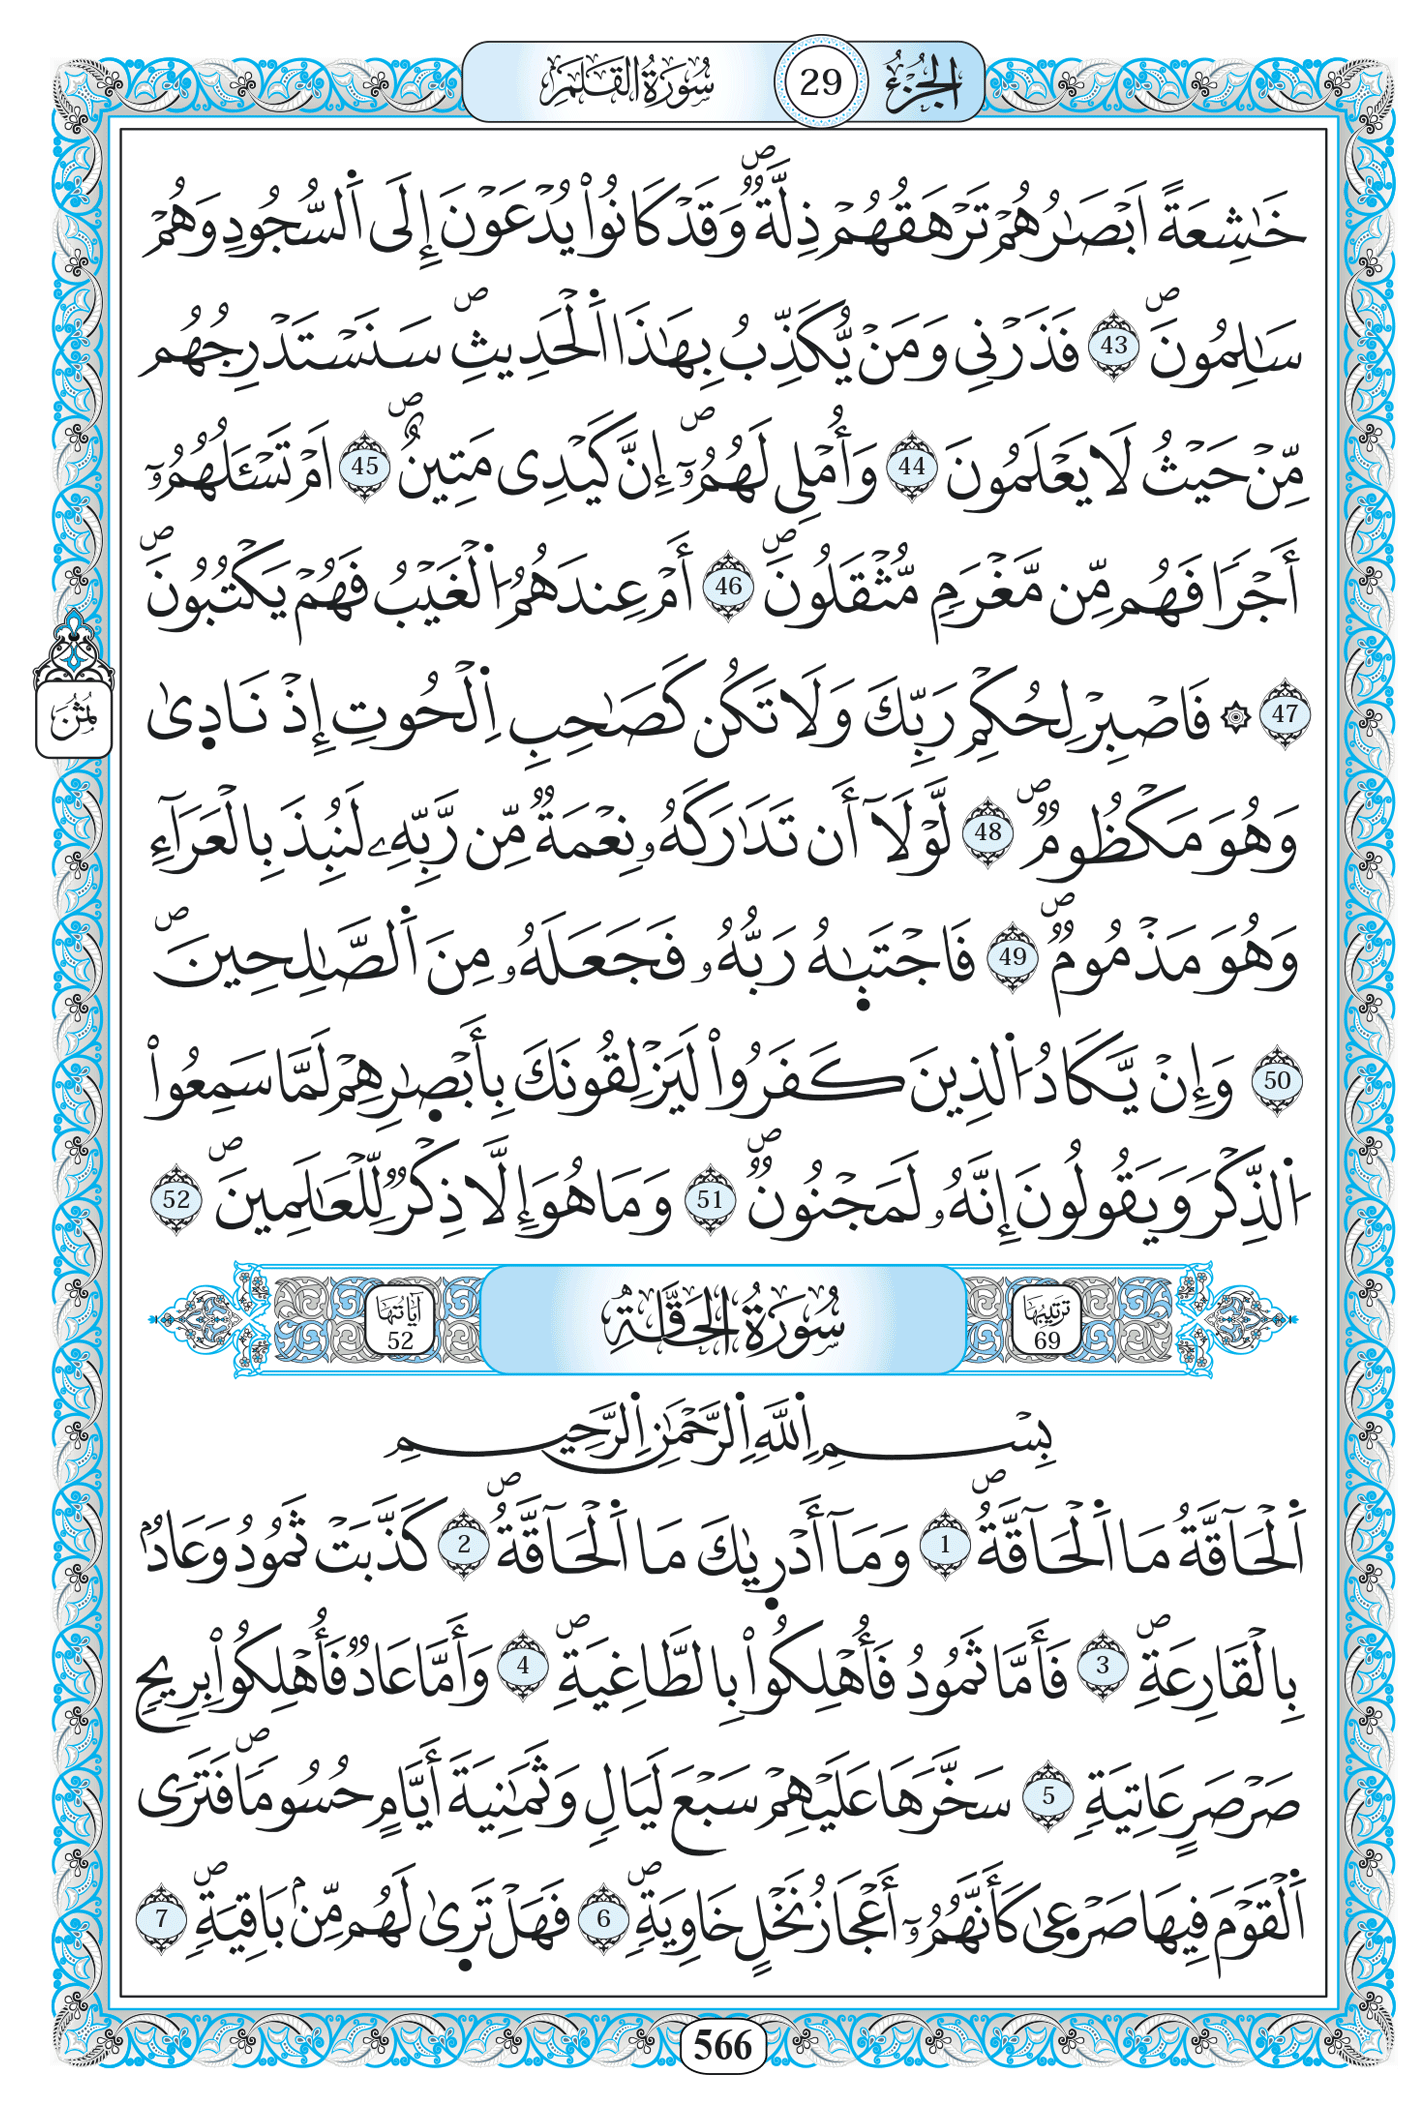 الجزء 29 سورة القلم
خَٰشِعَةً اَبْصَٰرُهُمْ تَرْهَقُهُمْ ذِلَّةٞۖ وَقَدْ كَانُواْ يُدْعَوْنَ إِلَى اَ۬لسُّجُودِ وَهُمْ
سَٰلِمُونَۖ 43 فَذَرْنِي وَمَنْ يُّكَذِّبُ بِهَٰذَا اَ۬لْحَدِيثِۖ سَنَسْتَدْرِجُهُم
مِّنْ حَيْثُ لَا يَعْلَمُونَ 44 وَأُمْلِي لَهُمُۥٓۖ إِنَّ كَيْدِي مَتِينٌۖ 45 اَمْ تَسْـَٔلُهُمُۥٓ
أَجْراٗ فَهُم مِّن مَّغْرَمٖ مُّثْقَلُونَۖ 46 أَمْ عِندَهُمُ اُ۬لْغَيْبُ فَهُمْ يَكْتُبُونَۖ
47 ۞ فَاصْبِرْ لِحُكْمِ رَبِّكَ وَلَا تَكُن كَصَٰحِبِ اِ۬لْحُوتِ إِذْ نَادٜىٰ
وَهُوَ مَكْظُومٞۖ 48 لَّوْلَآ أَن تَدَٰرَكَهُۥ نِعْمَةٞ مِّن رَّبِّهِۦ لَنُبِذَ بِالْعَرَآءِ
وَهُوَ مَذْمُومٞۖ 49 فَاجْتَبٜىٰهُ رَبُّهُۥ فَجَعَلَهُۥ مِنَ اَ۬لصَّٰلِحِينَۖ
50 وَإِنْ يَّكَادُ اُ۬لذِينَ كَفَرُواْ لَيَزْلِقُونَكَ بِأَبْصٰٜرِهِمْ لَمَّا سَمِعُواْ
اُ۬لذِّكْرَ وَيَقُولُونَ إِنَّهُۥ لَمَجْنُونٞۖ 51 وَمَا هُوَ إِلَّا ذِكْرٞ لِّلْعَٰلَمِينَۖ 52
ثمن
ترتيبها 69 سورة الحاقة آياتها 52
بِسْمِ اِ۬للَّهِ اِ۬لرَّحْمَٰنِ اِ۬لرَّحِيمِ
اَ۬لْحَآقَّةُ مَا اَ۬لْحَآقَّةُۖ 1 وَمَآ أَدْرٜىٰكَ مَا اَ۬لْحَآقَّةُۖ 2 كَذَّبَتْ ثَمُودُ وَعَادُۢ
بِالْقَارِعَةِۖ 3 فَأَمَّا ثَمُودُ فَأُهْلِكُواْ بِالطَّاغِيَةِۖ 4 وَأَمَّا عَادٞ فَأُهْلِكُواْ بِرِيحٖ
صَرْصَرٍ عَاتِيَةٖ 5 سَخَّرَهَا عَلَيْهِمْ سَبْعَ لَيَالٖ وَثَمَٰنِيَةَ أَيَّامٍ حُسُوماٗۖ فَتَرَى
اَ۬لْقَوْمَ فِيهَا صَرْعٜىٰ كَأَنَّهُمُۥٓ أَعْجَازُ نَخْلٍ خَاوِيَةٖۖ 6 فَهَلْ تَرٜىٰ لَهُم مِّنۢ بَاقِيَةٖۖ 7
566